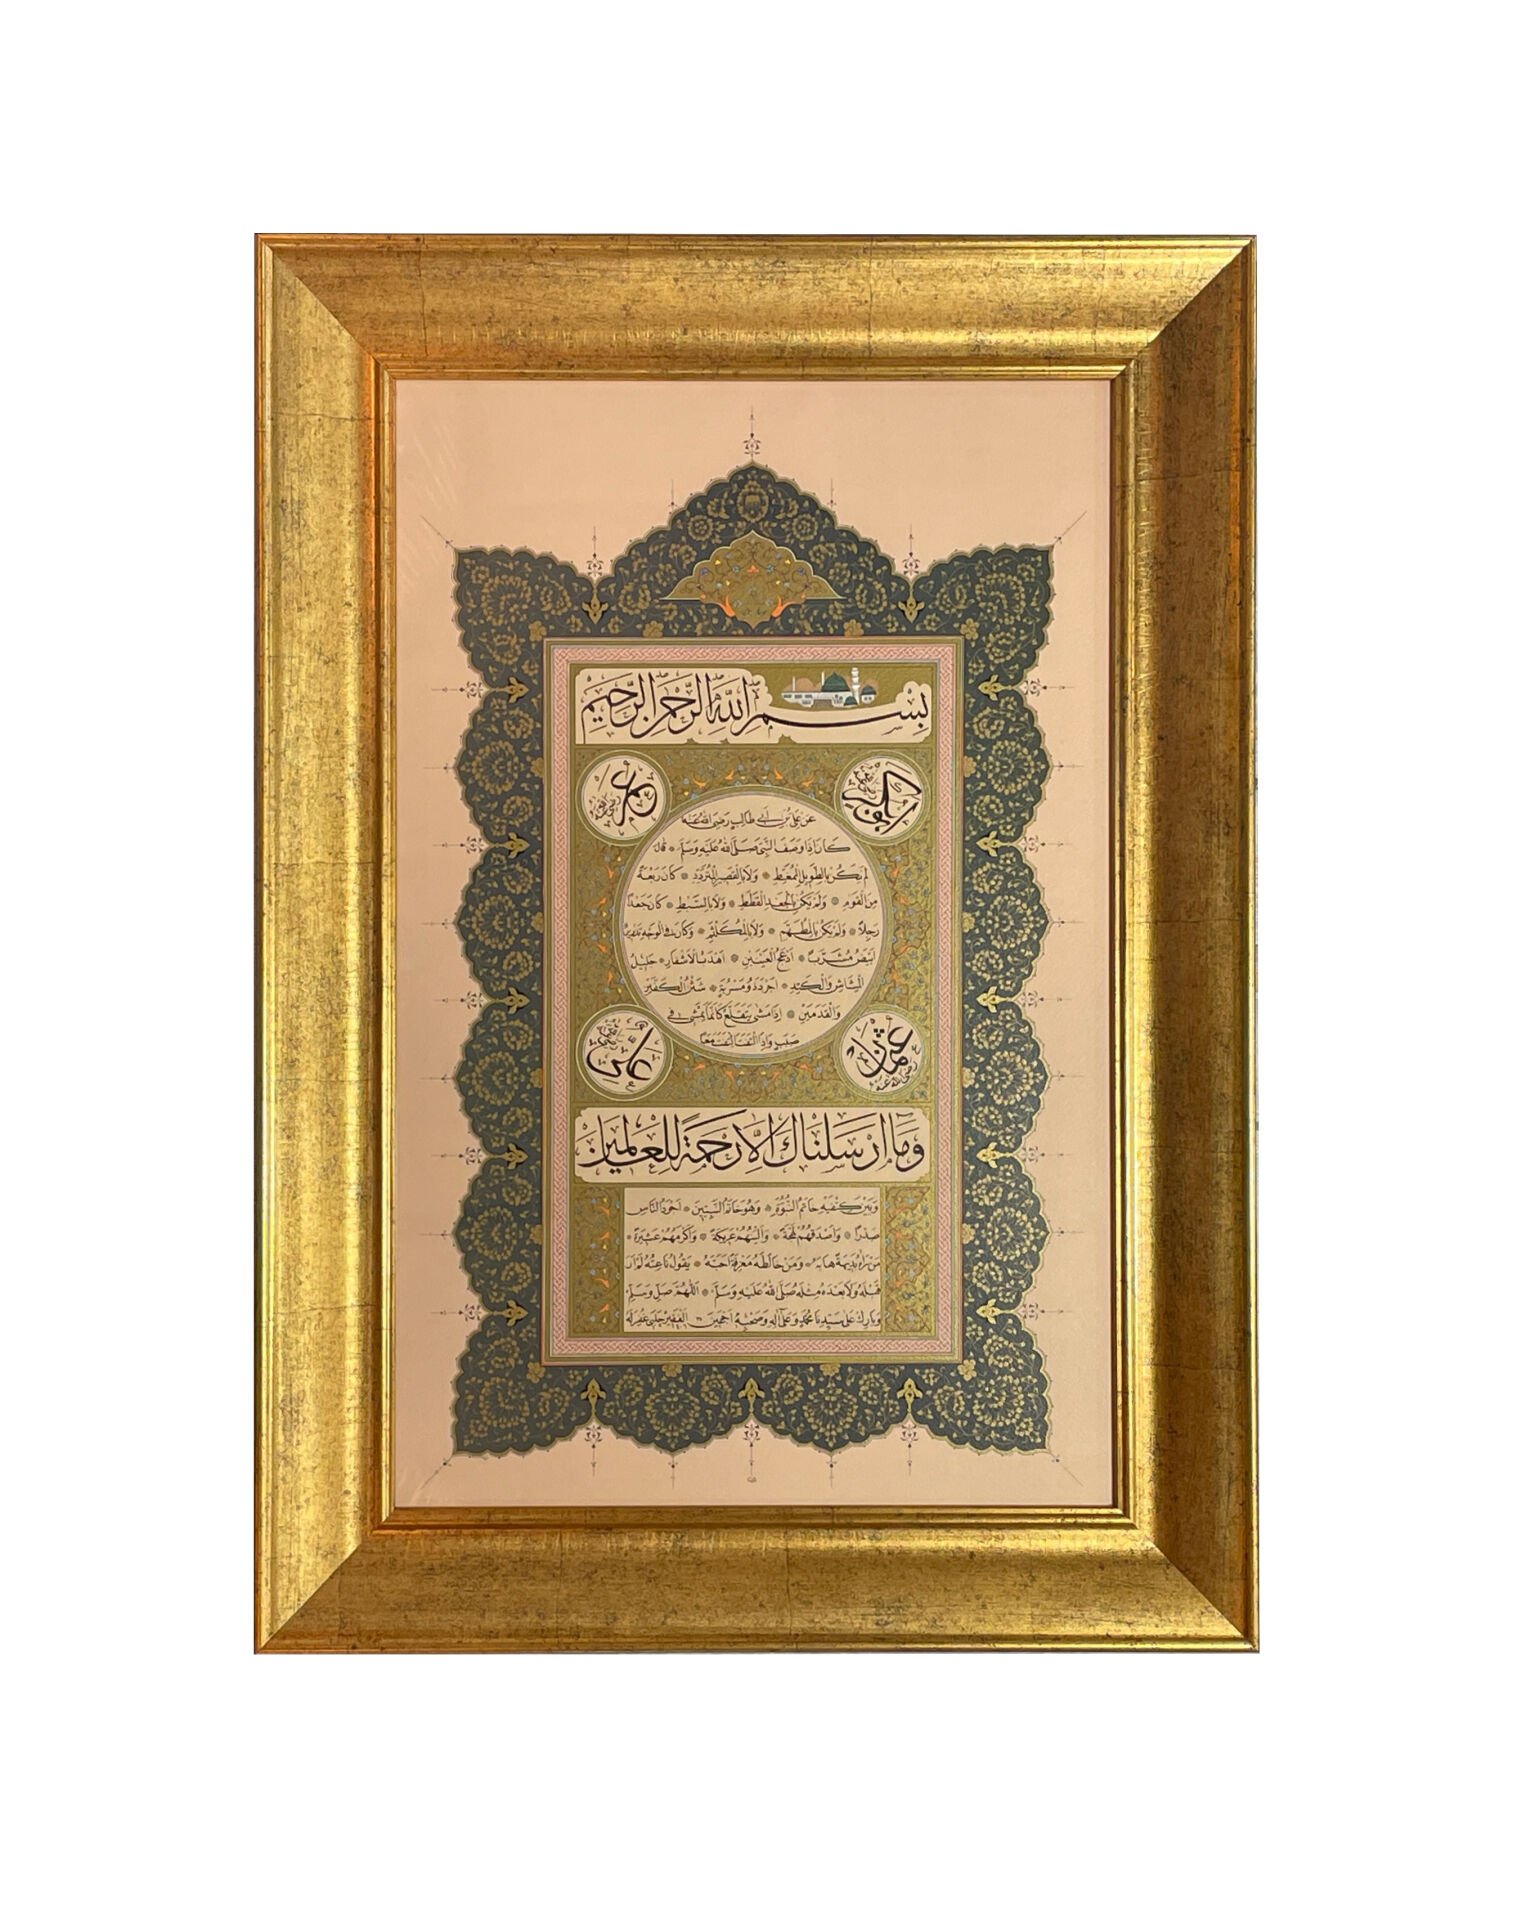 بِسْمِ اللهِ الرَّحْمٰنِ الرَّحِيمِ
ابو بكر رضى الله عنه
عمر رضى الله عنه
عن على بن ابى طالب رضى الله عنه
كان اذا وصف النبى صلى الله عليه وسلم ۞ قال
لم يكن بالطويل الممغط ۞ ولا بالقصير المتردد ۞ كان ربعة
من القوم ۞ ولم يكن بالجعد القطط ۞ ولا بالسبط ۞ كان جعدا
رجلا ۞ ولم يكن بالمطهم ۞ ولا بالمكلثم ۞ وكان فى الوجه تدوير
ابيض مشرب ۞ ادعج العينين ۞ اهدب الاشفار ۞ جليل
المشاش والكتد ۞ اجرد ذو مسربة ۞ شثن الكفين
والقدمين ۞ اذا مشى يتقلع كانما يمشى فى
صبب واذا التفت التفت معا
عثمان رضى الله عنه
على رضى الله عنه
وَمَا اَرْسَلْنَاكَ اِلَّا رَحْمَةً لِلْعَالَمِينَ
وبين كتفيه خاتم النبوة ۞ وهو خاتم النبيين ۞ اجود الناس
صدرا ۞ واصدقهم لهجة ۞ والينهم عريكة ۞ واكرمهم عشيرة ۞
من رآه بديهة هابه ۞ ومن خالطه معرفة احبه ۞ يقول ناعته لم ار
قبله ولا بعده مثله صلى الله عليه وسلم ۞ اللهم صل وسلم
وبارك على سيدنا محمد وعلى اله وصحبه اجمعين الفقير چلبى غفر له